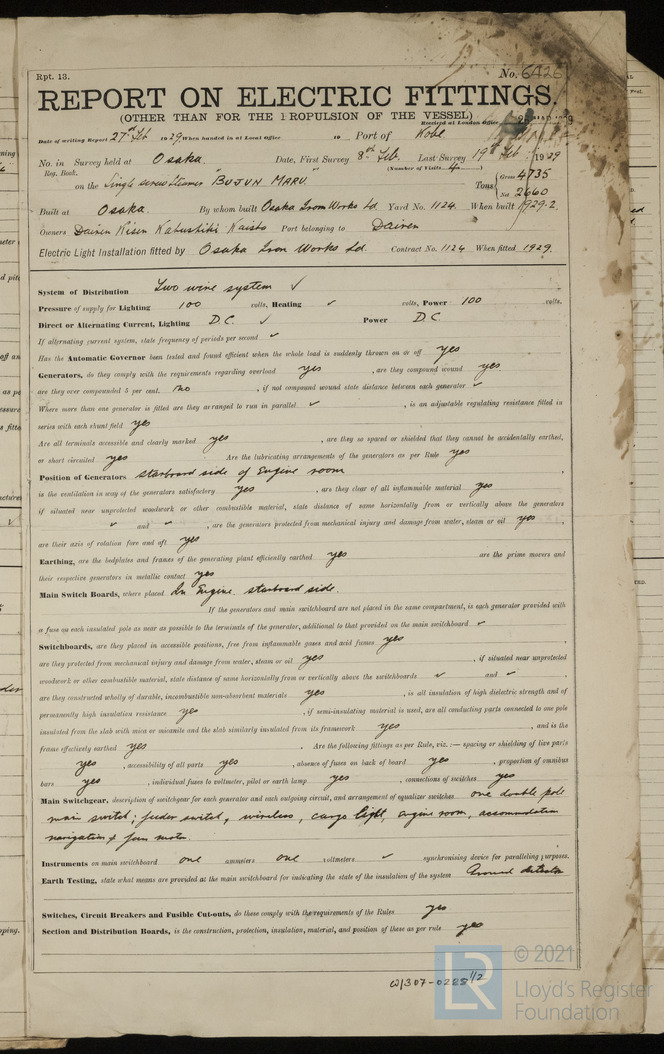 Rpt. 13.
No. 6426
REPORT ON ELECTRIC FITTINGS.
(OTHER THAN FOR THE PROPULSION OF THE VESSEL)
Received at London Office
Date of writing Report 27th Feb 1929 When handed in at Local Office 19 Port of Kobe
No. in Survey held at Osaka Date, First Survey 8th Feb. Last Survey 19th Feb 1929
Reg. Book. (Number of Visits 4)
on the Single screw steamer "BUJUN MARU." Tons { Gross 4735 Net 2660
Built at Osaka. By whom built Osaka Iron Works Ld Yard No. 1124. When built 1929-2.
Owners Dairen Kisen Kabushiki Kaisha Port belonging to Dairen
Electric Light Installation fitted by Osaka Iron Works Ld. Contract No. 1124 When fitted 1929.
System of Distribution Two wire system ✓
Pressure of supply for Lighting 100 volts, Heating ✓ volts, Power 100 volts.
Direct or Alternating Current, Lighting D.C. ✓ Power D.C.
If alternating current system, state frequency of periods per second ✓
Has the Automatic Governor been tested and found efficient when the whole load is suddenly thrown on or off yes
Generators, do they comply with the requirements regarding overload yes , are they compound wound yes
are they over compounded 5 per cent. no , if not compound wound state distance between each generator ✓
Where more than one generator is fitted are they arranged to run in parallel ✓ , is an adjustable regulating resistance fitted in
series with each shunt field yes
Are all terminals accessible and clearly marked yes , are they so spaced or shielded that they cannot be accidentally earthed,
or short circuited yes Are the lubricating arrangements of the generators as per Rule yes
Position of Generators starboard side of Engine room
is the ventilation in way of the generators satisfactory yes , are they clear of all inflammable material yes ,
if situated near unprotected woodwork or other combustible material, state distance of same horizontally from or vertically above the generators
" and " , are the generators protected from mechanical injury and damage from water, steam or oil yes ,
are their axis of rotation fore and aft yes
Earthing, are the bedplates and frames of the generating plant efficiently earthed yes are the prime movers and
their respective generators in metallic contact yes
Main Switch Boards, where placed In Engine starboard side.
If the generators and main switchboard are not placed in the same compartment, is each generator provided with
a fuse on each insulated pole as near as possible to the terminals of the generator, additional to that provided on the main switchboard ✓
Switchboards, are they placed in accessible positions, free from inflammable gases and acid fumes yes ,
are they protected from mechanical injury and damage from water, steam or oil yes , if situated near unprotected
woodwork or other combustible material, state distance of same horizontally from or vertically above the switchboards ✓ and " ,
are they constructed wholly of durable, incombustible non-absorbent materials yes , is all insulation of high dielectric strength and of
permanently high insulation resistance yes , if semi-insulating material is used, are all conducting parts connected to one pole
insulated from the slab with mica or micanite and the slab similarly insulated from its framework yes , and is the
frame effectively earthed yes . Are the following fittings as per Rule, viz. :— spacing or shielding of live parts
yes , accessibility of all parts yes , absence of fuses on back of board yes , proportion of omnibus
bars yes , individual fuses to voltmeter, pilot or earth lamp yes , connections of switches yes
Main Switchgear, description of switchgear for each generator and each outgoing circuit, and arrangement of equalizer switches one double pole
main switch; feeder switch, wireless, cargo light, engine room, accommodation
navigation & motor.
Instruments on main switchboard one ammeters one voltmeters ✓ synchronising device for paralleling purposes.
Earth Testing, state what means are provided at the main switchboard for indicating the state of the insulation of the system Ground detector
Switches, Circuit Breakers and Fusible Cut-outs, do these comply with the requirements of the Rules yes
Section and Distribution Boards, is the construction, protection, insulation, material, and position of these as per rule yes
W1307-0228 1/2
LR
© 2021
Lloyd's Register
Foundation